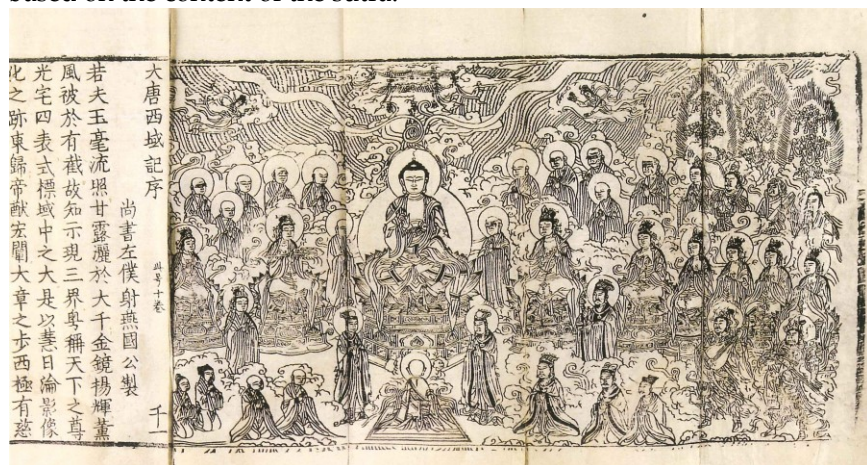 based on the content of the sutra.
大唐西域記序 十卷 千一
尚書左僕射燕國公製
若夫玉毫流照甘露灑於大千金鏡揚輝薰
風被於有截故知示現三界粤稱天下之尊
光宅四表式標域中之大是以慧日淪影像
化之跡東歸帝猷宏闡大章之步西極有慈